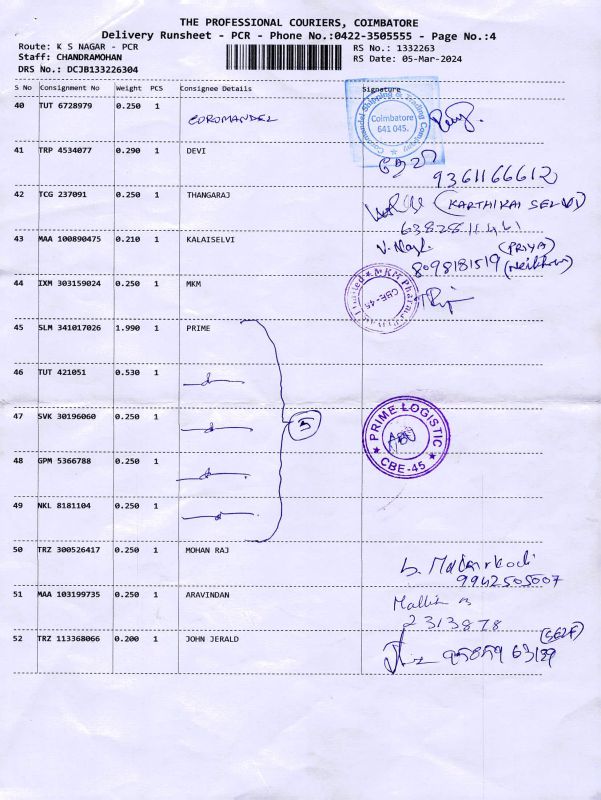 THE PROFESSIONAL COURIERS, COIMBATORE
Delivery Runsheet - PCR - Phone No.:0422-3505555 - Page No.:4
Route: K S NAGAR - PCR
Staff: CHANDRAMOHAN
DRS No.: DCJB133226304
RS No.: 1332263
RS Date: 05-Mar-2024
S No Consignment No Weight PCS Consignee Details Signature
40 TUT 6728979 0.250 1 COROMANDEL
Coromandel Shipping & Trading Company
Coimbatore
641 045.
41 TRP 4534077 0.290 1 DEVI
9361166612
42 TCG 237091 0.250 1 THANGARAJ
(KARTHIKAI SELVI)
43 MAA 100890475 0.210 1 KALAISELVI
(PRIYA)
8098181519
44 IXM 303159024 0.250 1 MKM
MKM Pharma
Limited
CBE-45
45 SLM 341017026 1.990 1 PRIME
46 TUT 421051 0.530 1
47 SVK 30196060 0.250 1
5
PRIME LOGISTIC
CBE-45
48 GPM 5366788 0.250 1
49 NKL 8181104 0.250 1
50 TRZ 300526417 0.250 1 MOHAN RAJ
9942505007
51 MAA 103199735 0.250 1 ARAVINDAN
2313878
52 TRZ 113368066 0.200 1 JOHN JERALD
(SELF)